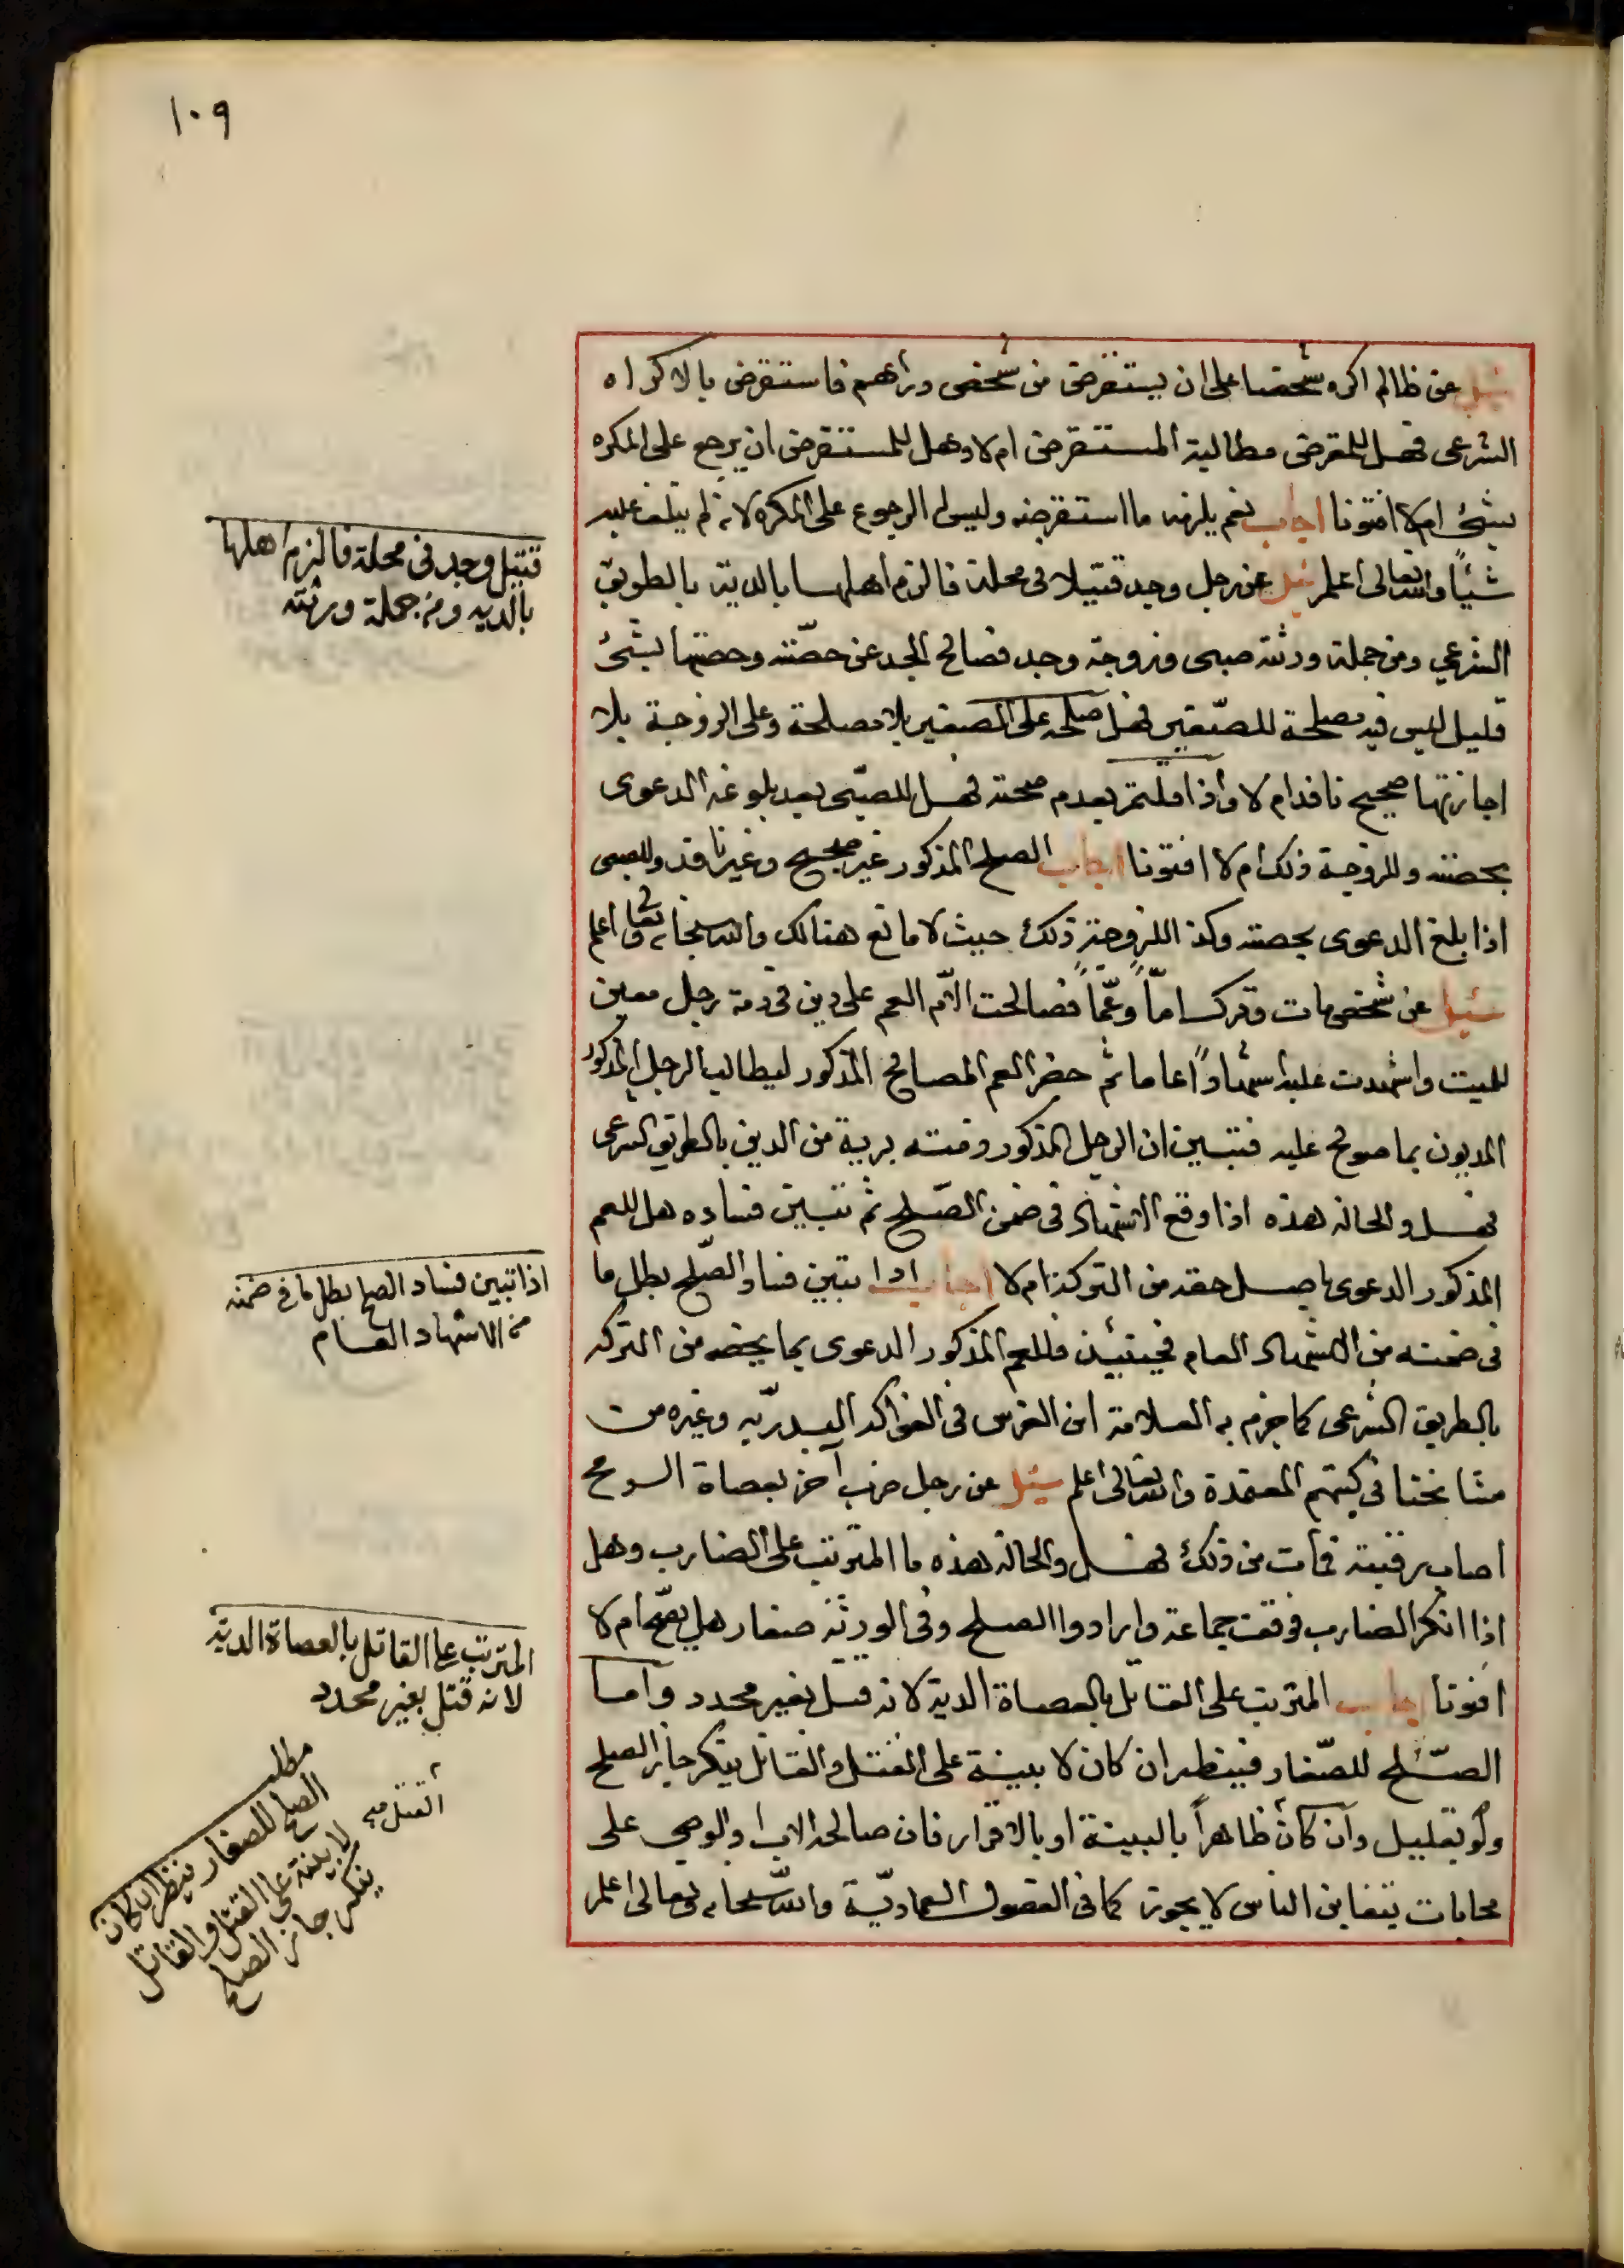 ١٠٩
سئل عن ظالم اكره شخصا على ان يستقرض من شخص دراهم فاستقرض بالاكراه
الشرعى فهل للمقرض مطالبة المستقرض ام لا وهل للمستقرض ان يرجع على المكره
بشئ ام لا افتونا اجاب نعم يلزمه ما استقرضه وليس له الرجوع على المكره لانه لم يتلف عليه
شيئاً والله تعالى اعلم سئل عن رجل وجد قتيلا فى محلة فالزم اهلها بالدية بالطريق
الشرعي ومن جملة ورثته صبى وزوجة وجد فصالح الجد عن حصّته وحصتها بشئ
قليل ليس فيه مصلحة للصّغير فهل صلحه على الصغير بلا مصلحة وعلى الزوجة بلا
اجازتها صحيح نافذ ام لا واذا قلتم بعدم صحته فهل للصبّى بعد بلوغه الدعوى
بحصته وللزوجة ذلك ام لا افتونا اجاب الصلح المذكور غير صحيح وغير نافذ وللصبى
اذا بلغ الدعوى بحصته وكذا للزوجة ذلك حيث لا مانع هنالك والله سبحانه وتعالى اعلم
سئيل عن شخص مات وترك امّاً وعمّاً فصالحت الامّ العم على دين فى ذمة رجل معين
للميت واشهدت عليه اشهاداً عاما ثم حضر العم المصالح المذكور ليطالب الرجل المذكور
المديون بما صولح عليه فتبين ان الرجل المذكور ذمته برية من الدين بالطريق الشرعى
فهل والحالة هذه اذا وقع الاشهاد فى ضمن الصّلح ثم تبين فساده هل للعم
المذكور الدعوى باصل حقه من التركة ام لا اجاب اذا تبين فساد الصّلح بطل ما
فى ضمنه من الاشهاد العام فحينئذ فللعم المذكور الدعوى بما يخصه من التركه
بالطريق الشرعى كما جزم به العلامة ابن الغرس فى الفواكه البدريّه وغيره من
مشايخنا فى كتبهم المعتمدة والله تعالى اعلم سئيل عن رجل ضرب آخر بعصاة الرمح
اصاب رقبته فمات من ذلك فهل والحالة هذه ما المترتب على الضارب وهل
اذا انكر الضارب فوقفت جماعة وارادوا الصلح وفى الورثة صغار هل يصّح ام لا
افتونا اجاب المترتب على القاتل بالعصاة الدية لانه قتل بغير محدد واما
الصّلح للصّغار فينظر ان كان لا بينة على القتل والقاتل ينكر جاز الصلح
ولو بقليل وان كان ظاهراً بالبينة او بالاقرار فان صالحه الاب او الوصى على
محابات يتغابن الناس لا يجوز كما فى الفصول العماديّة والله سبحانه وتعالى اعلم
قتيل وجد فى محلة فالزم اهلها
بالديه ومن جملة ورثته
اذا تبين فساد الصلح بطل ما في ضمنه
من الاشهاد العام
المترتب على القاتل بالعصاة الدية
لانه قتل بغير محدد
مطلب
الصلح للصغار ينظر ان كان
لا بينة على القتل والقاتل
ينكر جاز الصلح
القتل صح